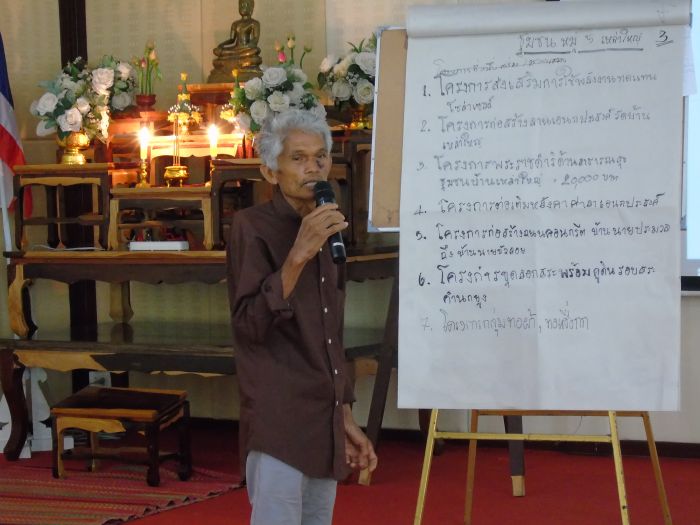 ชุมชน หมู่ 5 เหล่าใหญ่ 3
1. โครงการส่งเสริมการใช้พลังงานทดแทน
โซล่าเซลล์
2. โครงการก่อสร้างลานเอนกประสงค์ วัดบ้าน
เหล่าใหญ่
3. โครงการพระราชดำริด้านสาธารณสุข
ชุมชนบ้านเหล่าใหญ่ 20,000 บาท
4. โครงการต่อเติมหลังคาศาลาเอนกประสงค์
5. โครงการก่อสร้างถนนคอนกรีต บ้านนายประมวล
ถึง บ้านนาย
6. โครงการขุดลอกสระ พร้อมคูดินรอบสระ
7. โครงการกลุ่มทอผ้า,